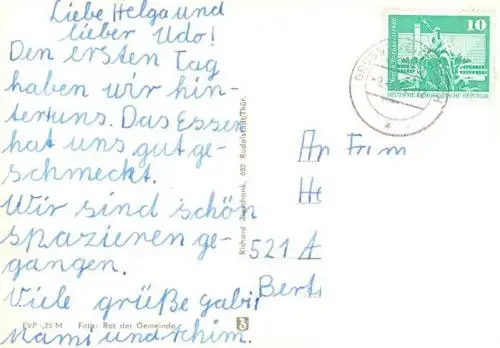 Liebe Helga und
lieber Udo!
Den ersten Tag
haben wir hin-
ter uns. Das Essen
hat uns gut ge-
schmeckt.
Wir sind schön
spazieren ge-
gangen.
Viele grüße gabi
Mami und
EVP -,25 M Foto: Rat der Gemeinde
Richard Zieschank, 682 Rudolstadt/Thür.
10
DEUTSCHE DEMOKRATISCHE REPUBLIK
An Fam
He
521 A
Bert